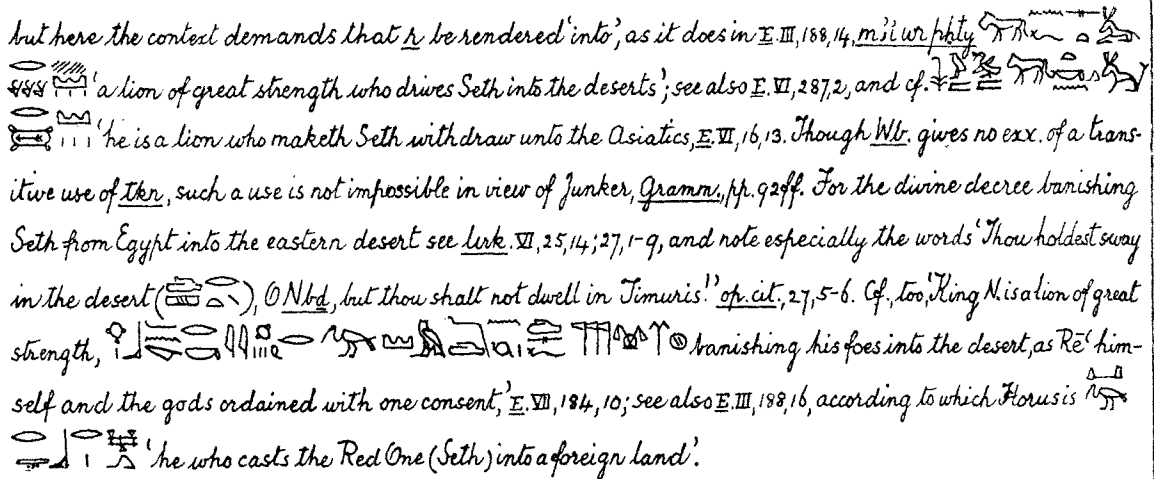 but here the context demands that r be rendered 'into', as it does in E. III, 188, 14, mꜣi wr pḥty
'a lion of great strength who drives Seth into the deserts'; see also E. VI, 287, 2, and cf.
'he is a lion who maketh Seth withdraw unto the Asiatics, E. VI, 16, 13. Though Wb. gives no exx. of a trans-
itive use of tkn, such a use is not impossible in view of Junker, Gramm., pp. 92ff. For the divine decree banishing
Seth from Egypt into the eastern desert see Urk. VI, 25, 14; 27, 1-9, and note especially the words 'Thou holdest sway
in the desert ( ), O Nbḏ, but thou shalt not dwell in Timuris!' op. cit., 27, 5-6. Cf., too, 'King N. is a lion of great
strength, banishing his foes into the desert, as Rēꜥ him-
self and the gods ordained with one consent,' E. VII, 184, 10; see also E. III, 188, 16, according to which Horus is
'he who casts the Red One (Seth) into a foreign land'.